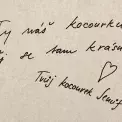 Ty náš kocourku
se tam krásn
Tvůj kocourek